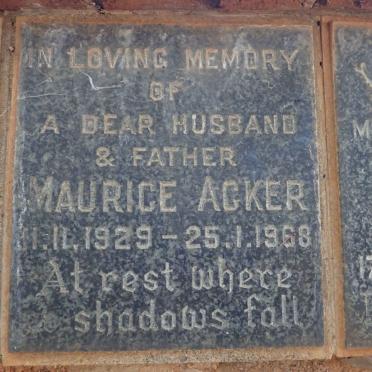 IN LOVING MEMORY
OF
A DEAR HUSBAND
& FATHER
MAURICE ACKER
11.11.1929 – 25.1.1968
At rest where
shadows fall